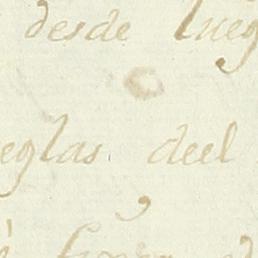 desde lueg
eglas. deel